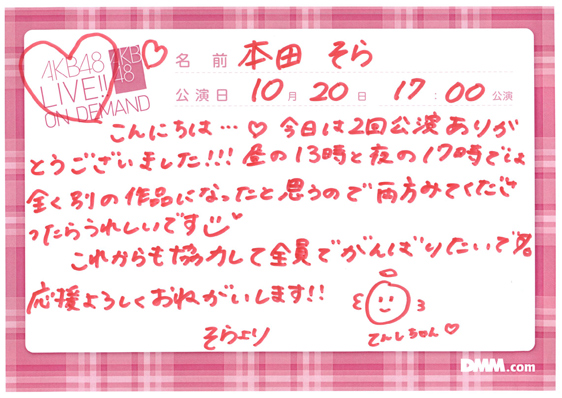 AKB48
LIVE!!
ON DEMAND
AKB
48
名前 本田 そら
公演日 10月 20日 17:00公演
こんにちは…♡ 今日は2回公演ありが
とうございました!!! 昼の13時と夜の17時では
全く別の作品になったと思うので両方みてくださ
ったらうれしいです
これからも協力して全員でがんばりたいです
応援よろしくおねがいします!!
そらより
てんしちゃん♡
DMM.com